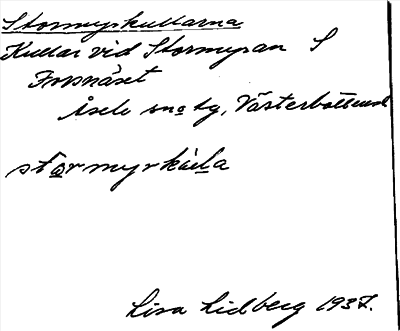 Stormyrkullarna
Kullar vid Stormyran S
Forsnäset
Åsele sn o tg, Västerbotten
stormyrkùla
Lisa Lidberg 1937.